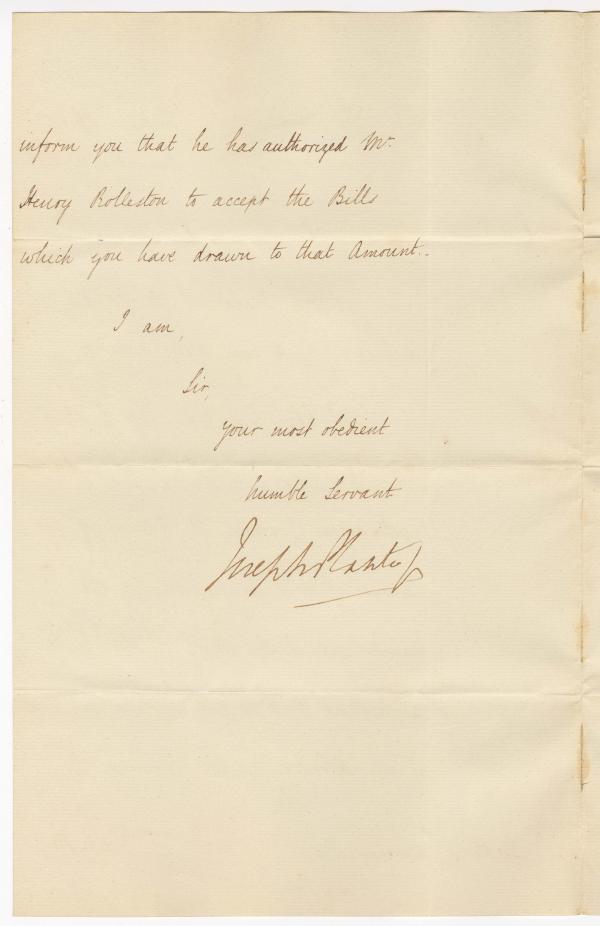 inform you that he has authorized Mr
Henry Rolleston to accept the Bills
which you have drawn to that Amount.
I am,
Sir,
your most obedient
humble Servant
Joseph Planta